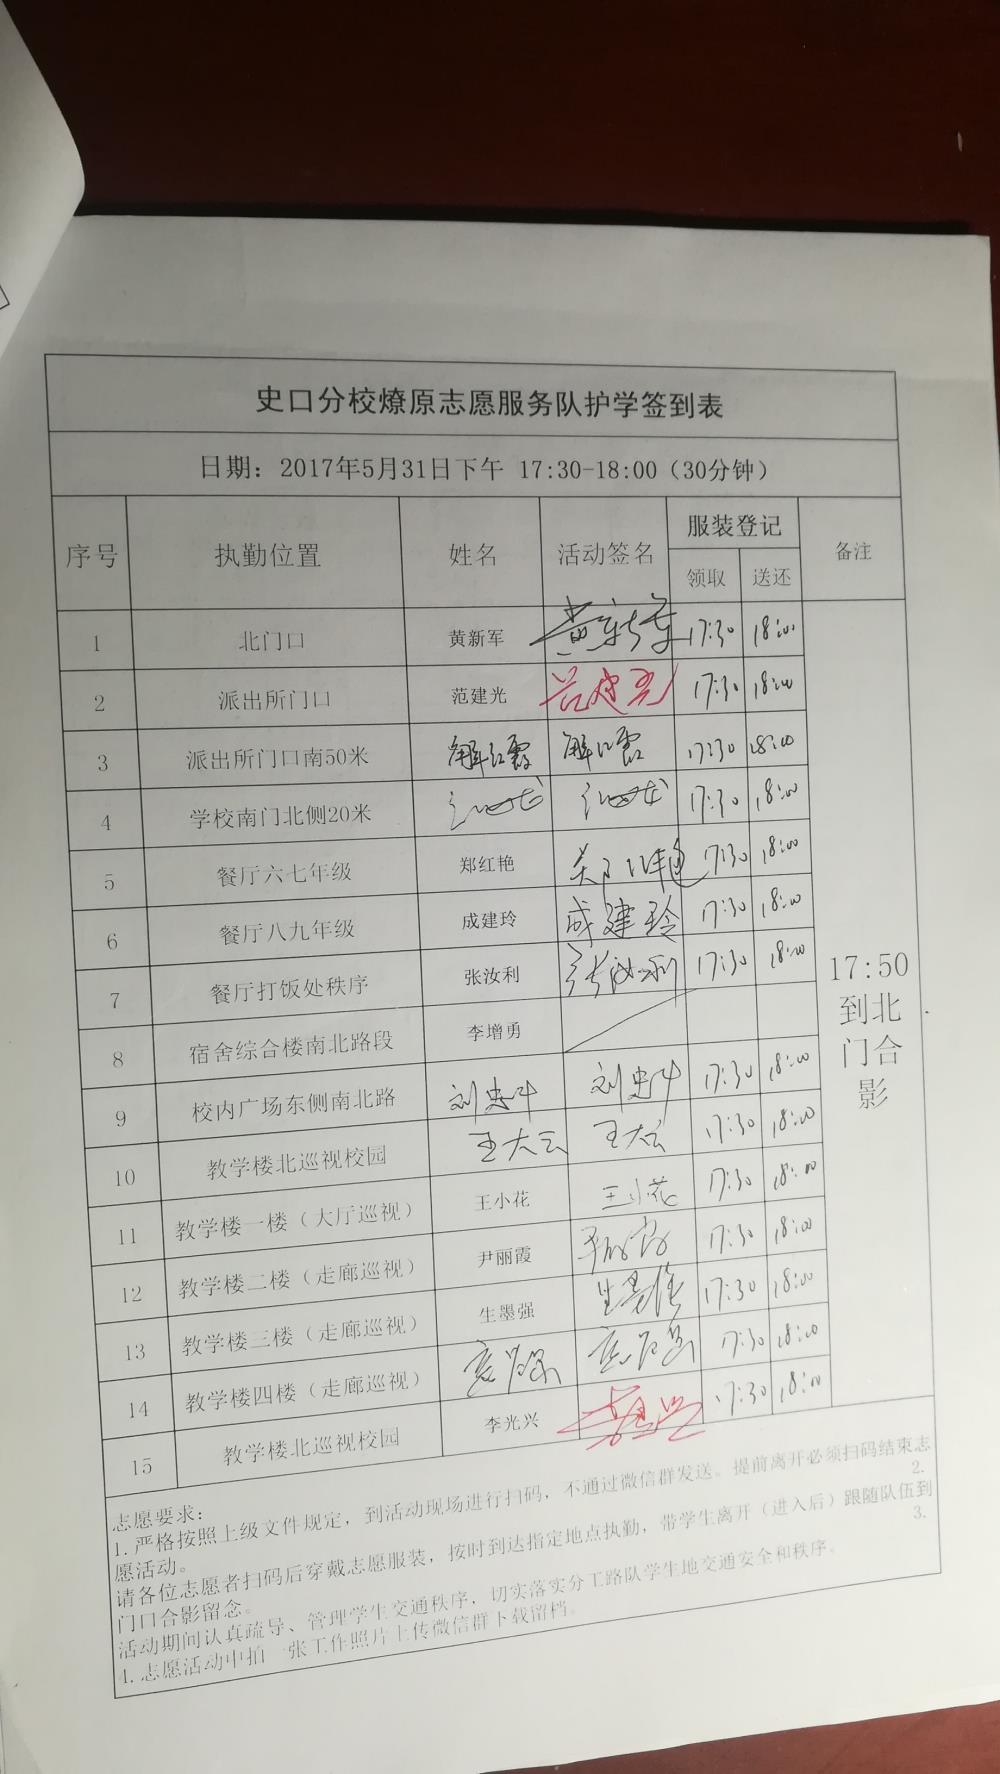 史口分校燎原志愿服务队护学签到表
日期：2017年5月31日下午 17:30-18:00（30分钟）
序号 执勤位置 姓名 活动签名 服装登记 备注
领取 送还
1 北门口 黄新军 黄新军 17:30 18:00
2 派出所门口 范建光 范建光 17:30 18:00
3 派出所门口南50米 解红霞 解红霞 17:30 18:00
4 学校南门北侧20米 17:30 18:00
5 餐厅六七年级 郑红艳 郑红艳 17:30 18:00
6 餐厅八九年级 成建玲 成建玲 17:30 18:00
7 餐厅打饭处秩序 张汝利 张汝利 17:30 18:00
8 宿舍综合楼南北路段 李增勇
9 校内广场东侧南北路 17:30 18:00
10 教学楼北巡视校园 王大云 王大云 17:30 18:00
11 教学楼一楼（大厅巡视） 王小花 王小花 17:30 18:00
12 教学楼二楼（走廊巡视） 尹丽霞 17:30 18:00
13 教学楼三楼（走廊巡视） 生墨强 生墨强 17:30 18:00
14 教学楼四楼（走廊巡视） 17:30 18:00
15 教学楼北巡视校园 李光兴 李光兴 17:30 18:00
17:50
到北
门合
影
志愿要求：
1.严格按照上级文件规定，到活动现场进行扫码，不通过微信群发送。提前离开必须扫码结束志
愿活动。 2.
请各位志愿者扫码后穿戴志愿服装，按时到达指定地点执勤，带学生离开（进入后）跟随队伍到
门口合影留念。 3.
活动期间认真疏导、管理学生交通秩序，切实落实分工路队学生地交通安全和秩序。
4.志愿活动中拍一张工作照片上传微信群下载留档。